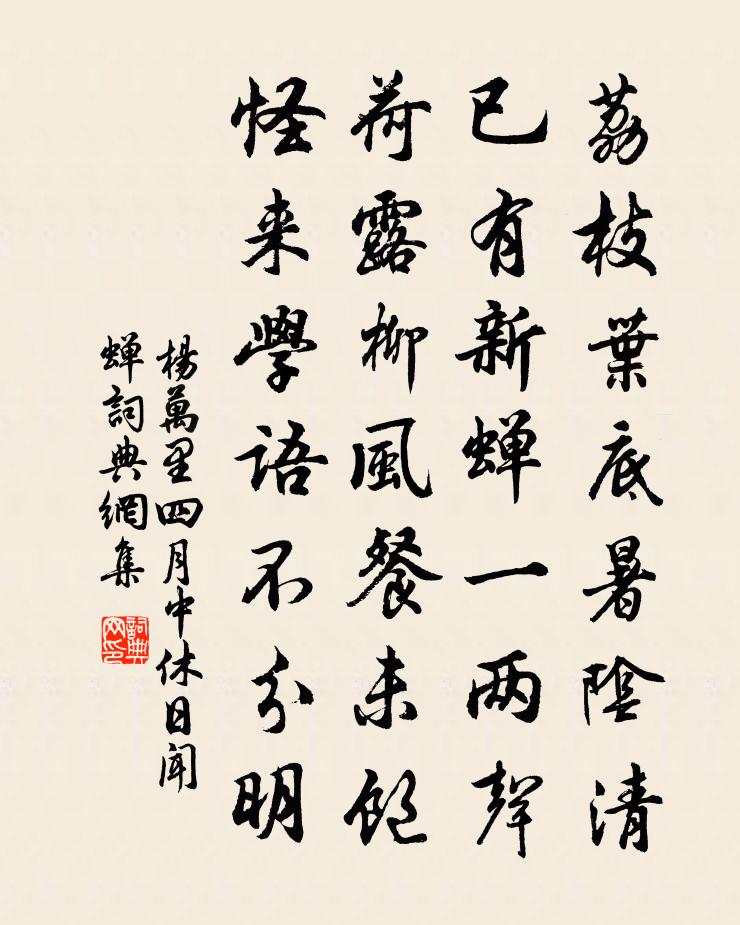 荔枝葉底暑陰清
已有新蝉一两聲
荷露柳風餐未飽
怪来學語不分明
楊萬里四月中休日闻
蝉詞典網集
詞典网印